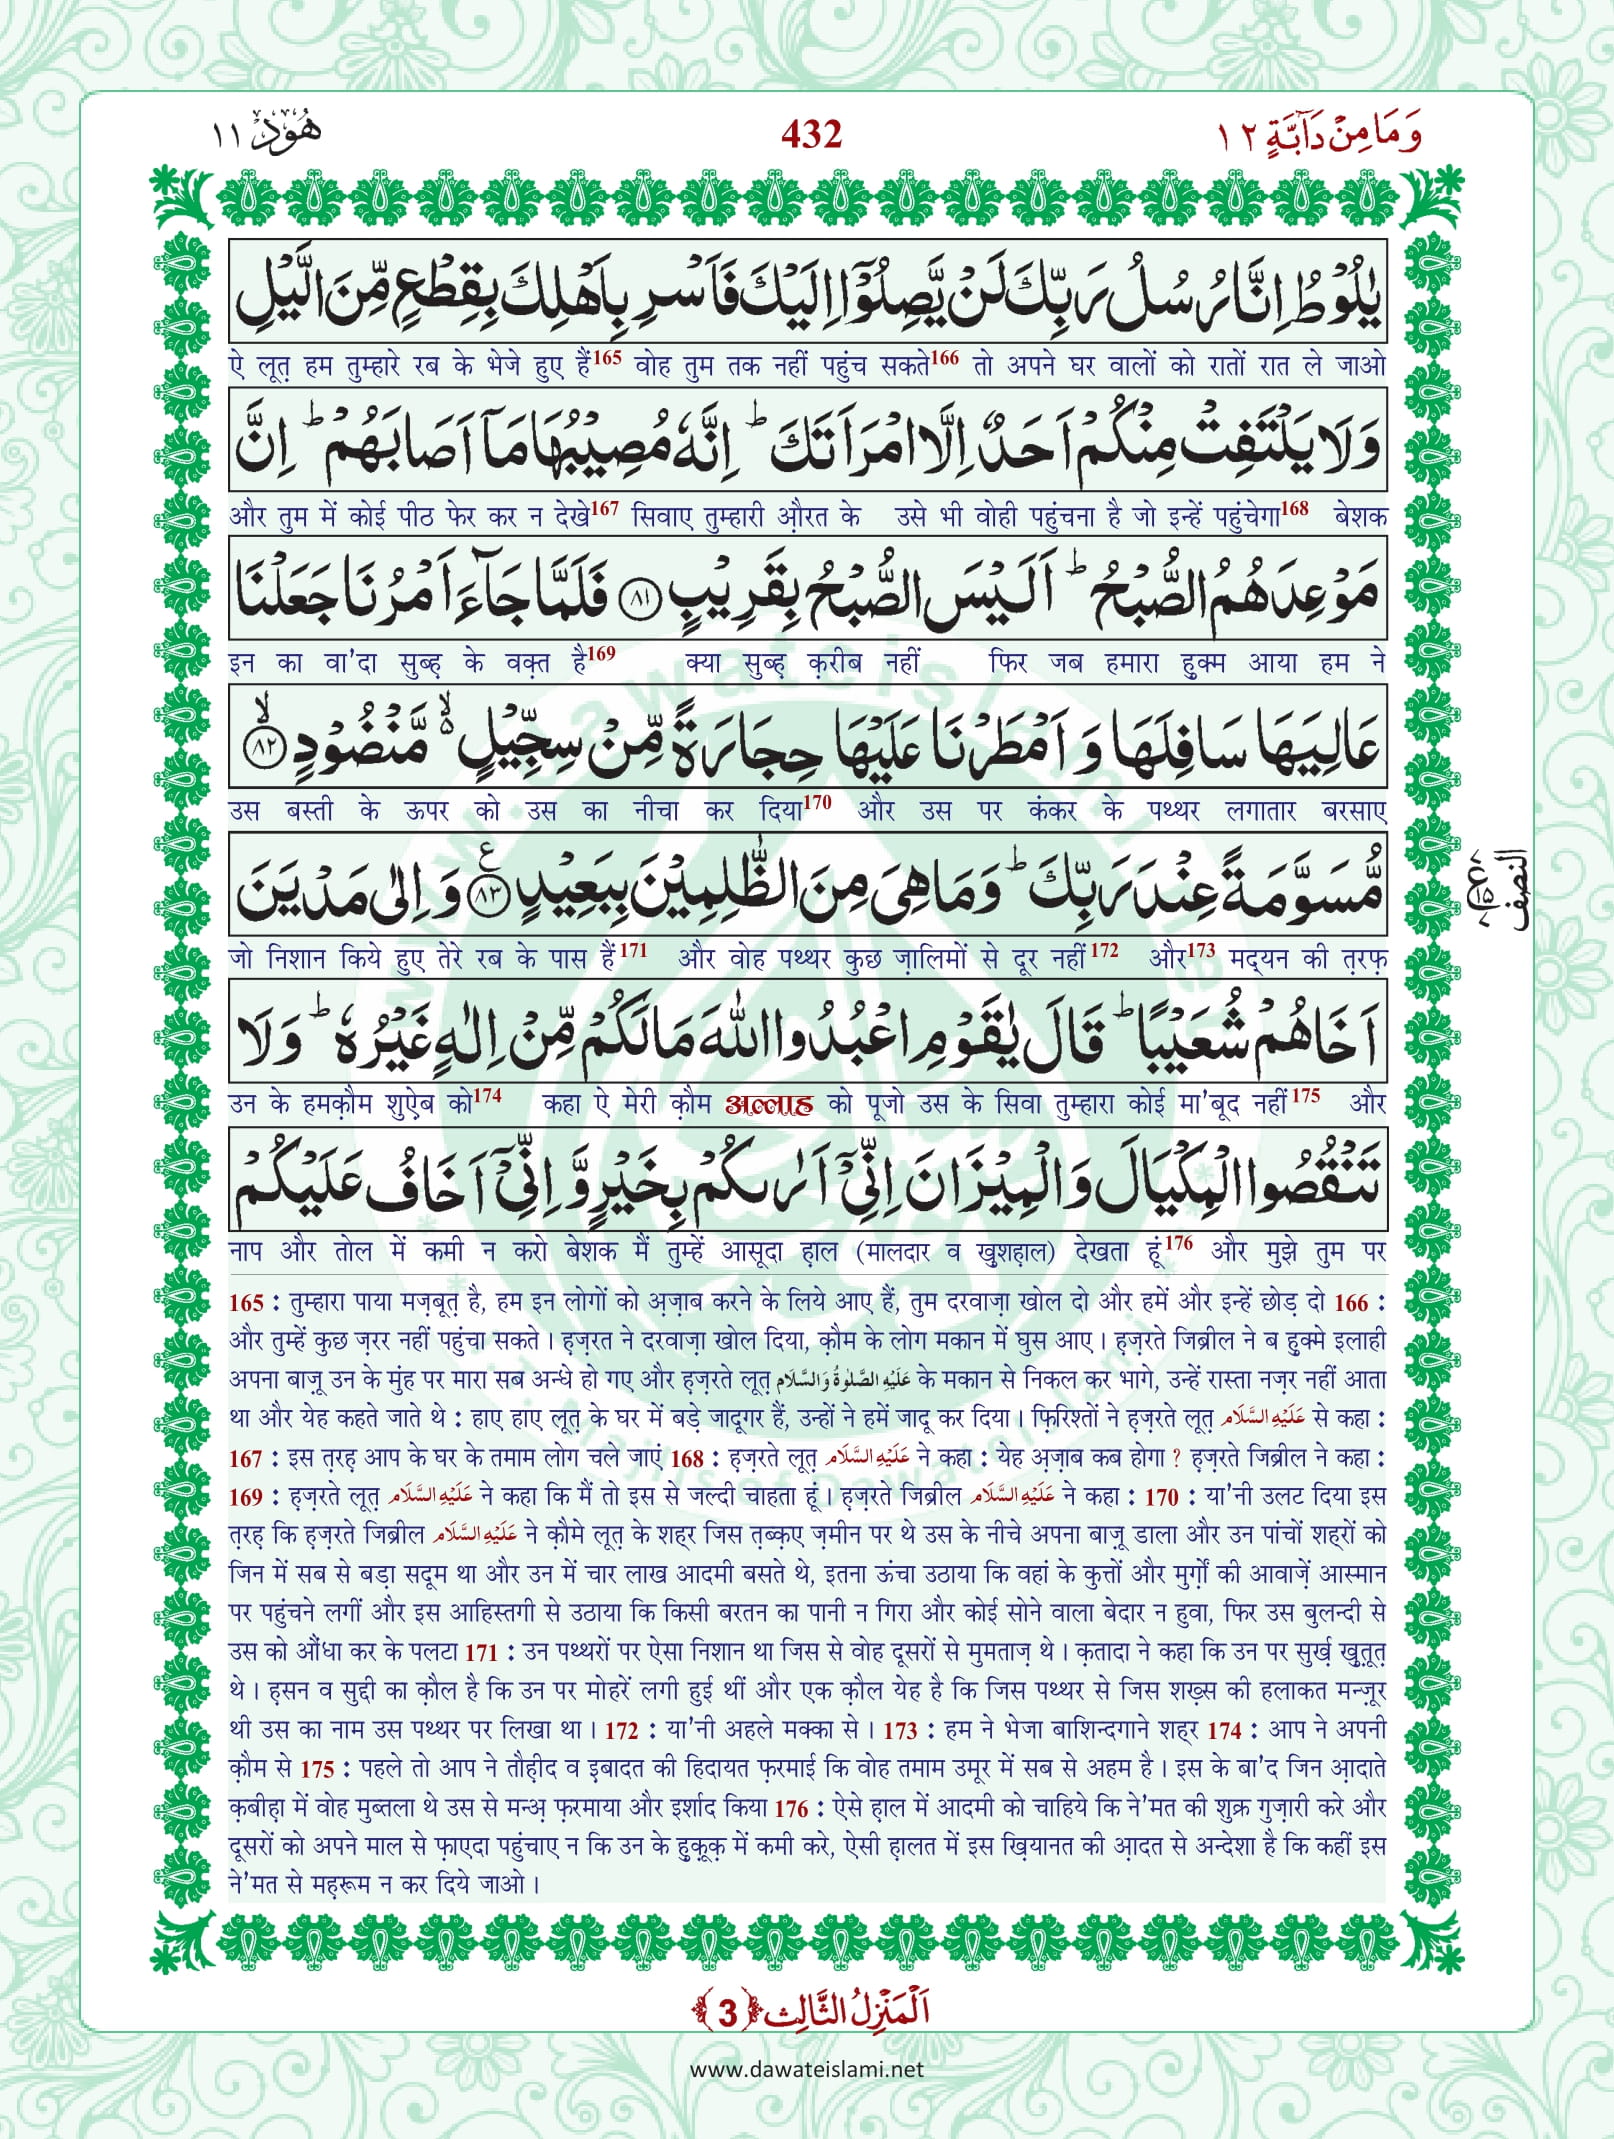 وَمَا مِنْ دَآبَّةٍ ١٢
432
هُوْد ١١
يٰلُوْطُ اِنَّا رُسُلُ رَبِّكَ لَنْ يَّصِلُوْۤا اِلَيْكَ فَاَسْرِ بِاَهْلِكَ بِقِطْعٍ مِّنَ الَّيْلِ
ऐ लूत़ हम तुम्हारे रब के भेजे हुए हैं165 वोह तुम तक नहीं पहुंच सकते166 तो अपने घर वालों को रातों रात ले जाओ
وَلَا يَلْتَفِتْ مِنْكُمْ اَحَدٌ اِلَّا امْرَاَتَكَ ؕ اِنَّهٗ مُصِيْبُهَا مَاۤ اَصَابَهُمْ ؕ اِنَّ
और तुम में कोई पीठ फेर कर न देखे167 सिवाए तुम्हारी औ़रत के उसे भी वोही पहुंचना है जो इन्हें पहुंचेगा168 बेशक
مَوْعِدَهُمُ الصُّبْحُ ؕ اَلَيْسَ الصُّبْحُ بِقَرِيْبٍ ﴿٨١﴾ فَلَمَّا جَآءَ اَمْرُنَا جَعَلْنَا
इन का वा'दा सुब्ह़ के वक़्त है169 क्या सुब्ह़ क़रीब नहीं फिर जब हमारा हुक्म आया हम ने
عَالِيَهَا سَافِلَهَا وَ اَمْطَرْنَا عَلَيْهَا حِجَارَةً مِّنْ سِجِّيْلٍ ۙ۬ مَّنْضُوْدٍ ﴿٨٢﴾ۙ
उस बस्ती के ऊपर को उस का नीचा कर दिया170 और उस पर कंकर के पथ्थर लगातार बरसाए
مُّسَوَّمَةً عِنْدَ رَبِّكَ ؕ وَمَا هِىَ مِنَ الظّٰلِمِيْنَ بِبَعِيْدٍ ﴿٨٣﴾ وَ اِلٰى مَدْيَنَ
जो निशान किये हुए तेरे रब के पास हैं171 और वोह पथ्थर कुछ ज़ालिमों से दूर नहीं172 और173 मद्यन की त़रफ़
اَخَاهُمْ شُعَيْبًا ؕ قَالَ يٰقَوْمِ اعْبُدُوا اللّٰهَ مَا لَكُمْ مِّنْ اِلٰهٍ غَيْرُهٗ ؕ وَلَا
उन के हमक़ौम शुऐ़ब को174 कहा ऐ मेरी क़ौम अल्लाह को पूजो उस के सिवा तुम्हारा कोई मा'बूद नहीं175 और
تَنْقُصُوا الْمِكْيَالَ وَ الْمِيْزَانَ اِنِّىْۤ اَرٰىكُمْ بِخَيْرٍ وَّ اِنِّىْۤ اَخَافُ عَلَيْكُمْ
नाप और तोल में कमी न करो बेशक मैं तुम्हें आसूदा ह़ाल (मालदार व खुशह़ाल) देखता हूं176 और मुझे तुम पर
النصف
165 : तुम्हारा पाया मज़बूत़ है, हम इन लोगों को अ़ज़ाब करने के लिये आए हैं, तुम दरवाज़ा खोल दो और हमें और इन्हें छोड़ दो 166 :
और तुम्हें कुछ ज़रर नहीं पहुंचा सकते । ह़ज़रत ने दरवाज़ा खोल दिया, क़ौम के लोग मकान में घुस आए । ह़ज़रते जिब्रील ने ब हुक्मे इलाही
अपना बाज़ू उन के मुंह पर मारा सब अन्धे हो गए और ह़ज़रते लूत़ عَلَيْهِ الصَّلٰوةُ وَالسَّلَام के मकान से निकल कर भागे, उन्हें रास्ता नज़र नहीं आता
था और येह कहते जाते थे : हाए हाए लूत़ के घर में बड़े जादूगर हैं, उन्हों ने हमें जादू कर दिया । फ़िरिश्तों ने ह़ज़रते लूत़ عَلَيْهِ السَّلَام से कहा :
167 : इस त़रह़ आप के घर के तमाम लोग चले जाएं 168 : ह़ज़रते लूत़ عَلَيْهِ السَّلَام ने कहा : येह अ़ज़ाब कब होगा ? ह़ज़रते जिब्रील ने कहा :
169 : ह़ज़रते लूत़ عَلَيْهِ السَّلَام ने कहा कि मैं तो इस से जल्दी चाहता हूं । ह़ज़रते जिब्रील عَلَيْهِ السَّلَام ने कहा : 170 : या'नी उलट दिया इस
त़रह़ कि ह़ज़रते जिब्रील عَلَيْهِ السَّلَام ने क़ौमे लूत़ के शहर जिस त़ब्क़ए ज़मीन पर थे उस के नीचे अपना बाज़ू डाला और उन पांचों शहरों को
जिन में सब से बड़ा सदूम था और उन में चार लाख आदमी बसते थे, इतना ऊंचा उठाया कि वहां के कुत्तों और मुर्ग़ों की आवाज़ें आस्मान
पर पहुंचने लगीं और इस आहिस्तगी से उठाया कि किसी बरतन का पानी न गिरा और कोई सोने वाला बेदार न हुवा, फिर उस बुलन्दी से
उस को औंधा कर के पलटा 171 : उन पथ्थरों पर ऐसा निशान था जिस से वोह दूसरों से मुमताज़ थे । क़तादा ने कहा कि उन पर सुर्ख़ खु़तू़त़
थे । ह़सन व सुद्दी का क़ौल है कि उन पर मोहरें लगी हुई थीं और एक क़ौल येह है कि जिस पथ्थर से जिस शख़्स की हलाकत मन्ज़ूर
थी उस का नाम उस पथ्थर पर लिखा था । 172 : या'नी अहले मक्का से । 173 : हम ने भेजा बाशिन्दगाने शहर 174 : आप ने अपनी
क़ौम से 175 : पहले तो आप ने तौह़ीद व इ़बादत की हिदायत फ़रमाई कि वोह तमाम उमूर में सब से अहम है । इस के बा'द जिन आ़दाते
क़बीह़ा में वोह मुब्तला थे उस से मन्अ़ फ़रमाया और इर्शाद किया 176 : ऐसे ह़ाल में आदमी को चाहिये कि ने'मत की शुक्र गुज़ारी करे और
दूसरों को अपने माल से फ़ाएदा पहुंचाए न कि उन के हु़क़ूक़ में कमी करे, ऐसी ह़ालत में इस ख़ियानत की आ़दत से अन्देशा है कि कहीं इस
ने'मत से मह़रूम न कर दिये जाओ ।
اَلْمَنْزِلُ الثَّالِث ﴿3﴾
www.dawateislami.net